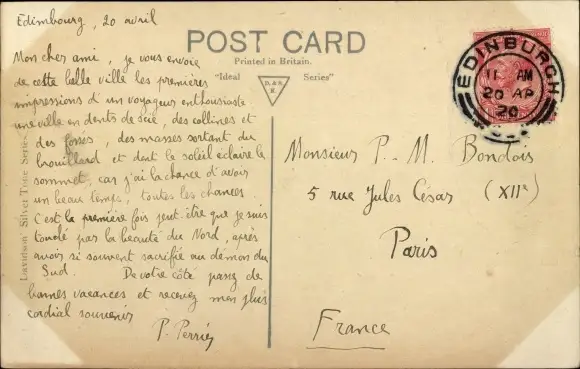 Edimbourg, 20 avril
Mon cher ami, je vous envoie
de cette belle ville les premières
impressions d'un voyageur enthousiaste :
une ville en dents de scie, des collines et
des fosses, des masses sortant du
brouillard et dont le soleil éclaire le
sommet, car j'ai la chance d'avoir
un beau temps, toutes les chances.
C'est la première fois peut-être que je suis
touché par la beauté du Nord, après
avoir si souvent sacrifié au démon du
Sud. De votre côté passez de
bonnes vacances et recevez mon plus
cordial souvenir
P. Perrier
POST CARD
Printed in Britain.
"Ideal Series"
D. & S.
K.
Davidson Silver Tone Series
EDINBURGH
11 AM
20 AP
20
Monsieur P. M. Bondois
5 rue Jules César (XIIe)
Paris
France